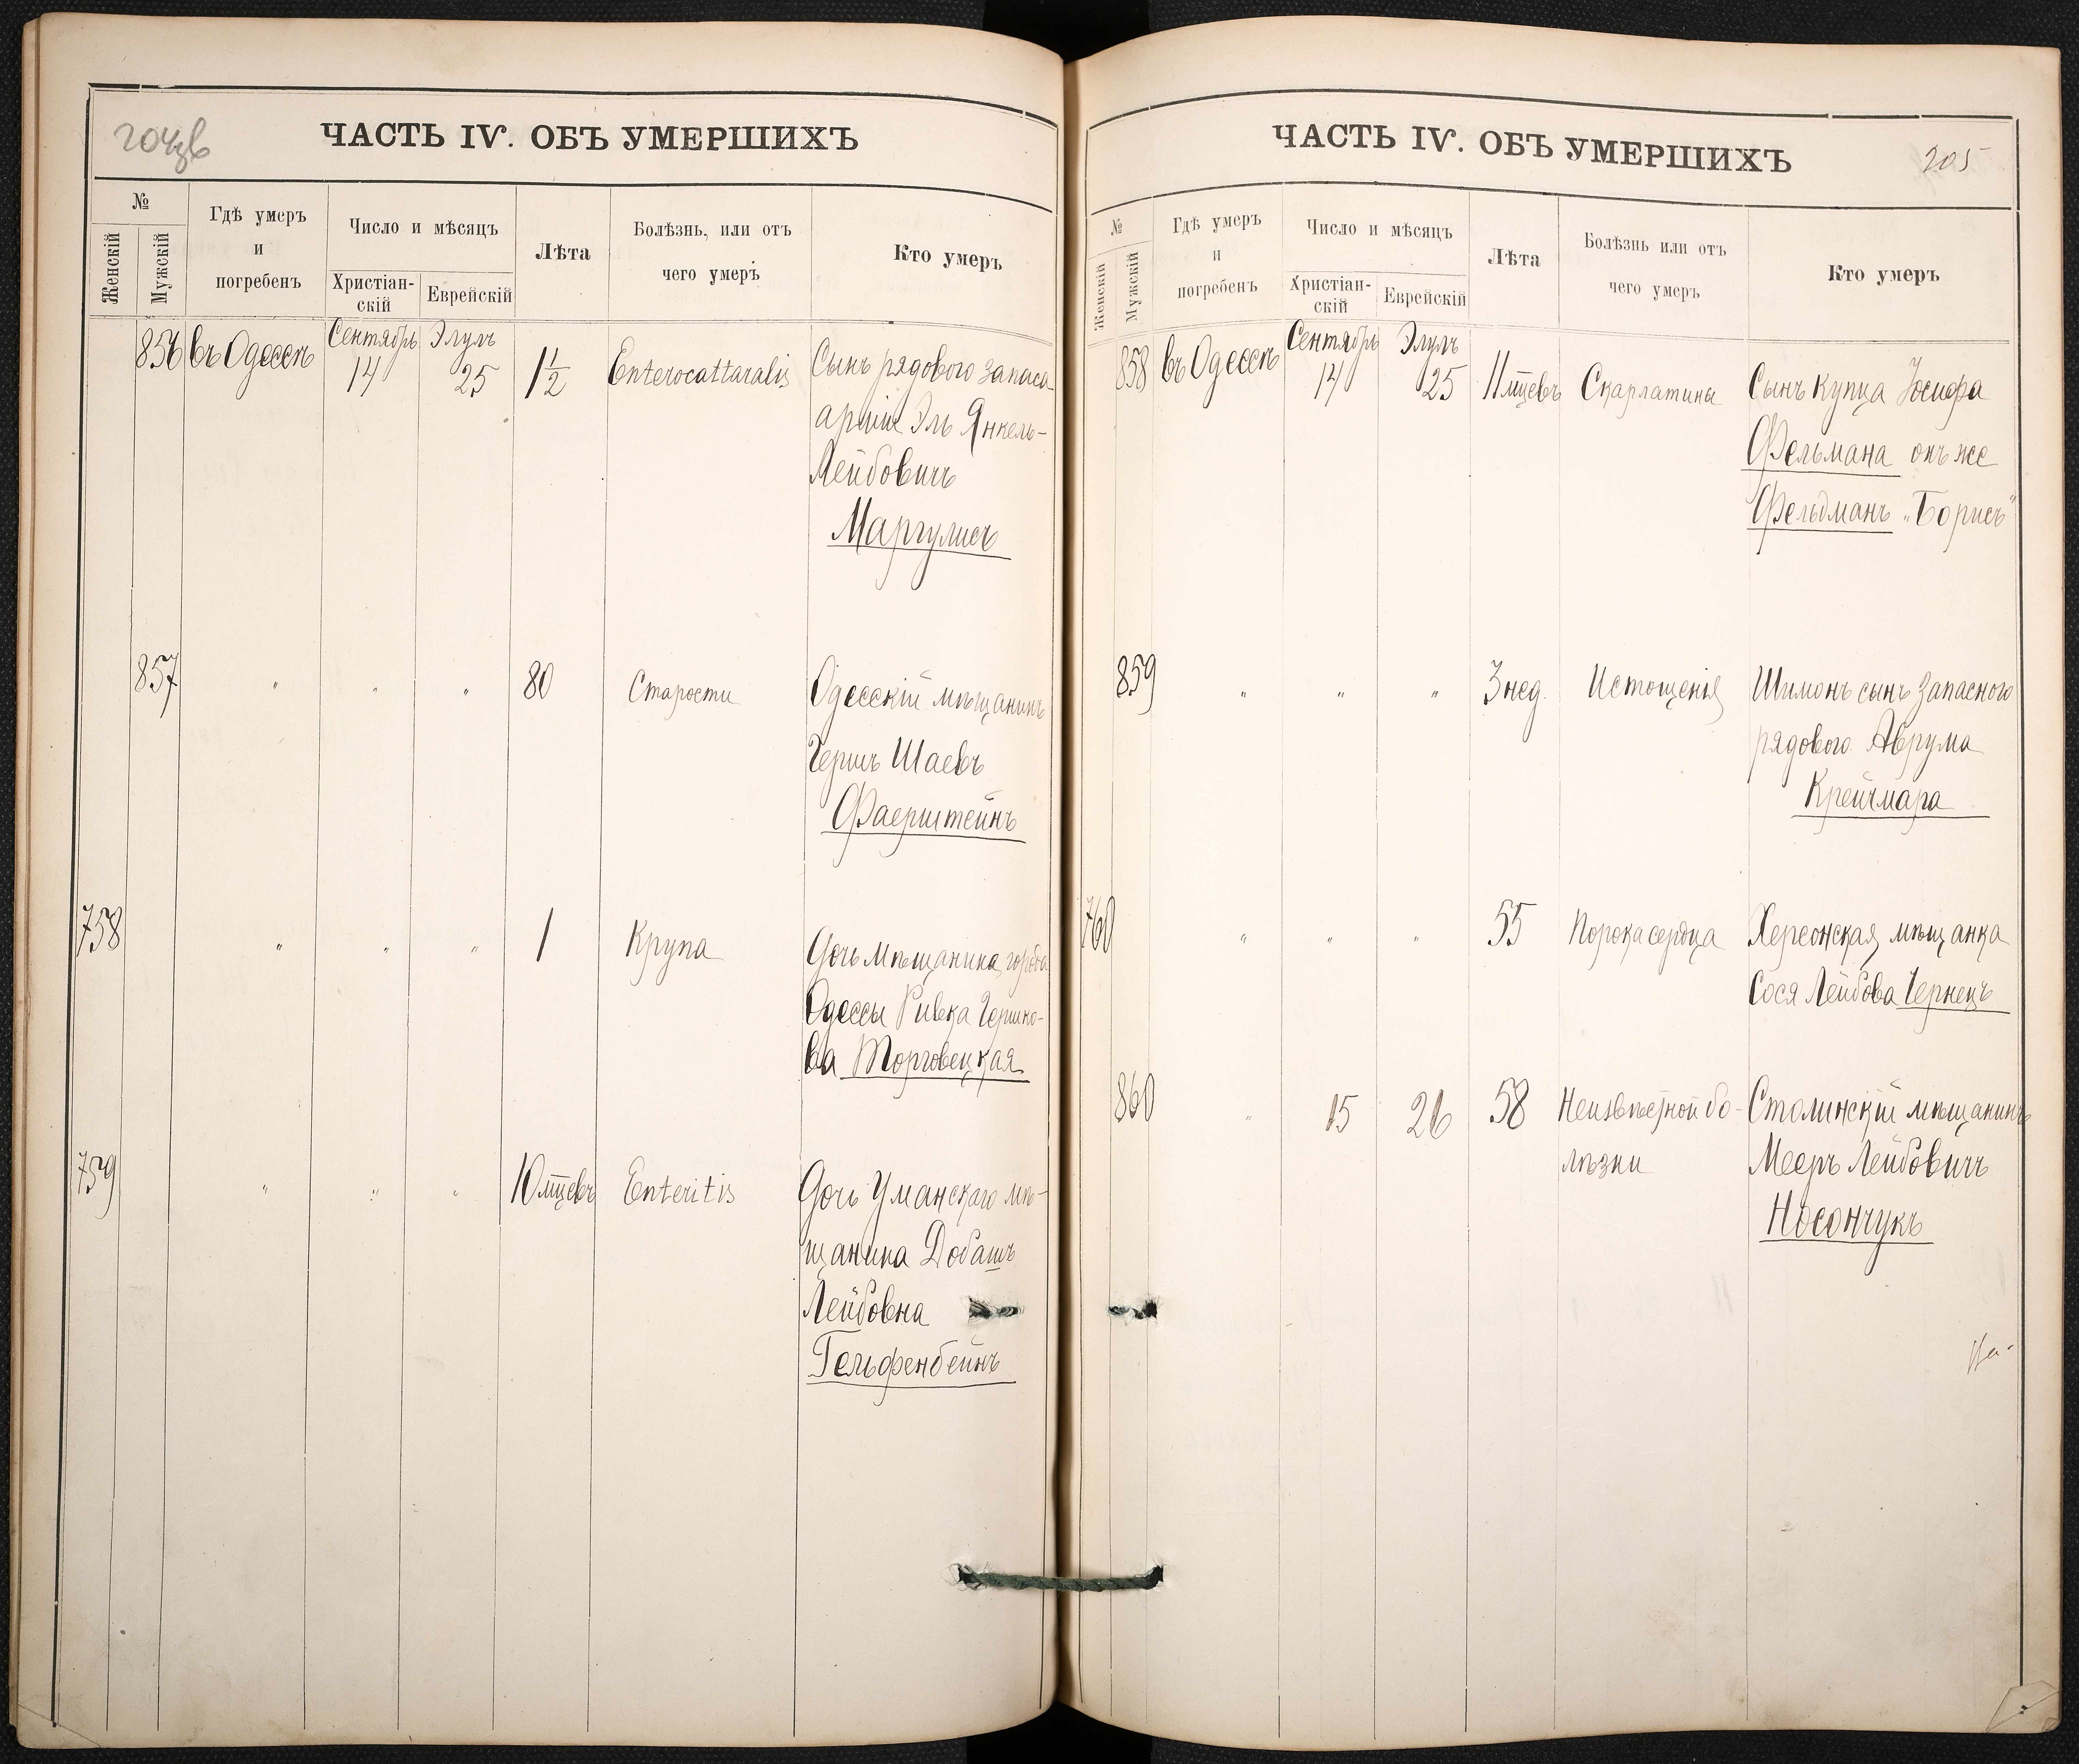 204 зв
ЧАСТЬ IV. ОБЪ УМЕРШИХЪ
№
Женскій
Мужскій
Гдѣ умеръ
и
погребенъ
Число и мѣсяцъ
Христіан-
скій
Еврейскій
Лѣта
Болѣзнь, или отъ
чего умеръ
Кто умеръ
856 въ Одессѣ Сентябрь 14 Элулъ 25 1½ Enterocattaralis Сынъ рядового запаса
арміи Эль Янкель-
Лейбовичъ
Маргулисъ
857 " " " 80 Старости Одесскій мѣщанинъ
Гершъ Шаевъ
Фаерштейнъ
758 " " " 1 Крупа Дочь мѣщанина города
Одессы Ривка Гершко-
ва Торговецкая
759 " " " 10 мѣцевъ Enteritis Дочь Уманскаго мѣ-
щанина Добашъ
Лейбовна
Гельфенбейнъ
ЧАСТЬ IV. ОБЪ УМЕРШИХЪ
205
№
Женскій
Мужскій
Гдѣ умеръ
и
погребенъ
Число и мѣсяцъ
Христіан-
скій
Еврейскій
Лѣта
Болѣзнь или отъ
чего умеръ
Кто умеръ
858 въ Одессѣ Сентябрь 14 Элулъ 25 11 мѣцевъ Скарлатины Сынъ купца Іосифа
Фельмана онъ же
Фельдманъ „Борисъ"
859 " " " 3 нед. Истощенія Шимонъ сынъ запасного
рядового Аврума
Крейчмара
760 " " " 55 Порока сердца Херсонская мѣщанка
Сося Лейбова Чернецъ
860 " 15 26 58 Неизвѣстной бо- Столинскій мѣщанинъ
лѣзни Мееръ Лейбовичъ
Носончукъ